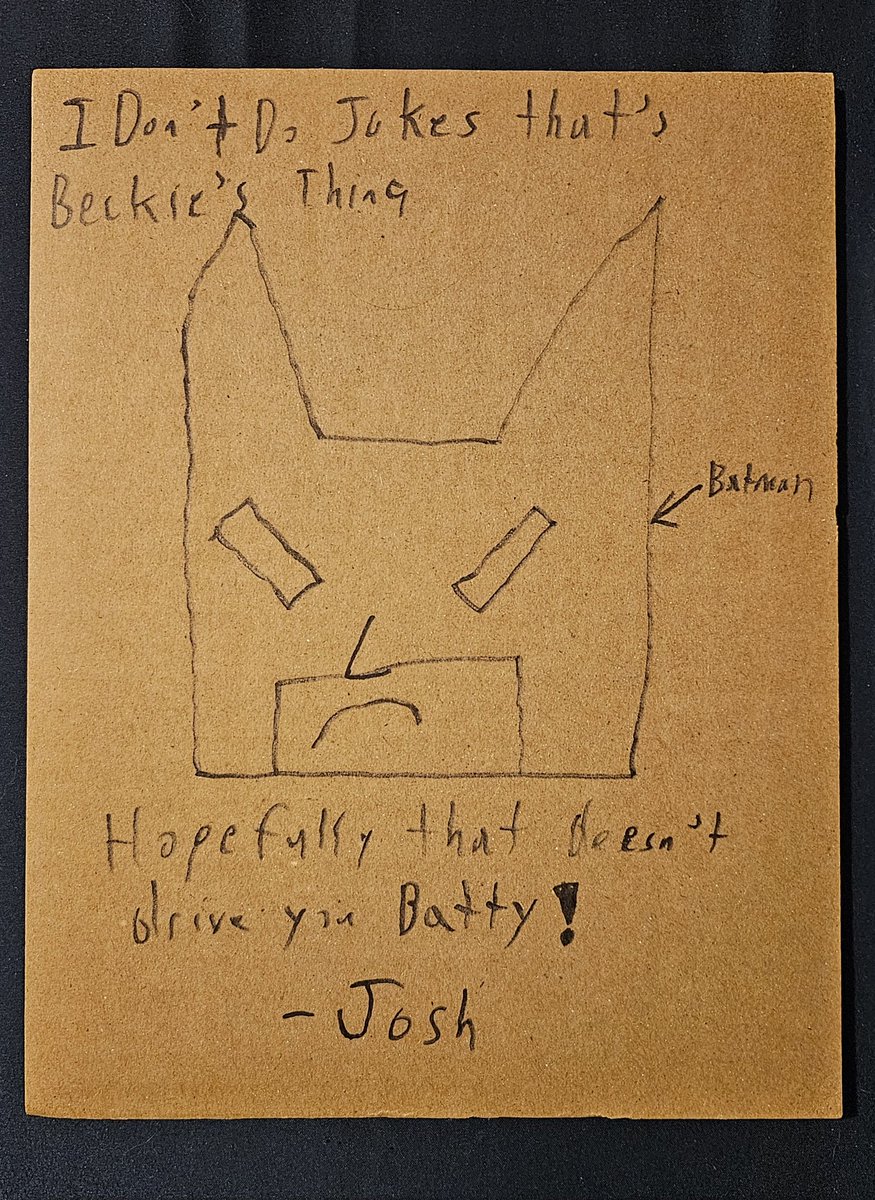 I Don't Do Jokes that's
Beckie's Thing
Batman
Hopefully that doesn't
drive you Batty!
-Josh